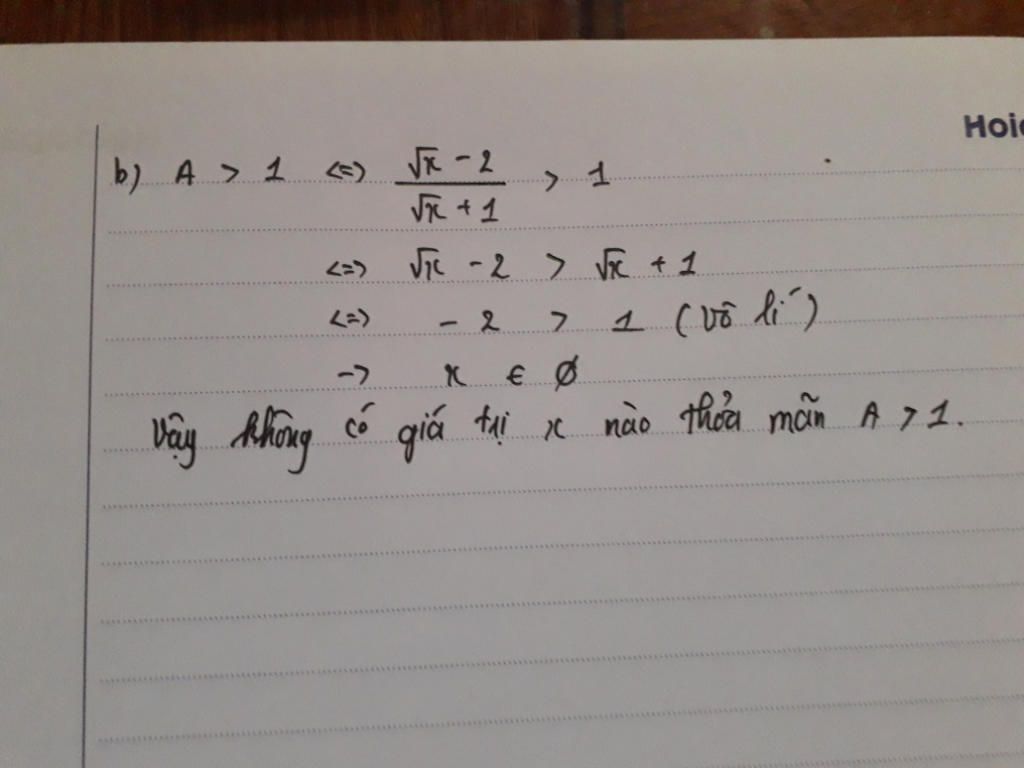 Hoic
b) A > 1 <=> (√x - 2)/(√x + 1) > 1
<=> √x - 2 > √x + 1
<=> - 2 > 1 (vô lí)
-> x ∈ ∅
Vậy không có giá trị x nào thỏa mãn A > 1.